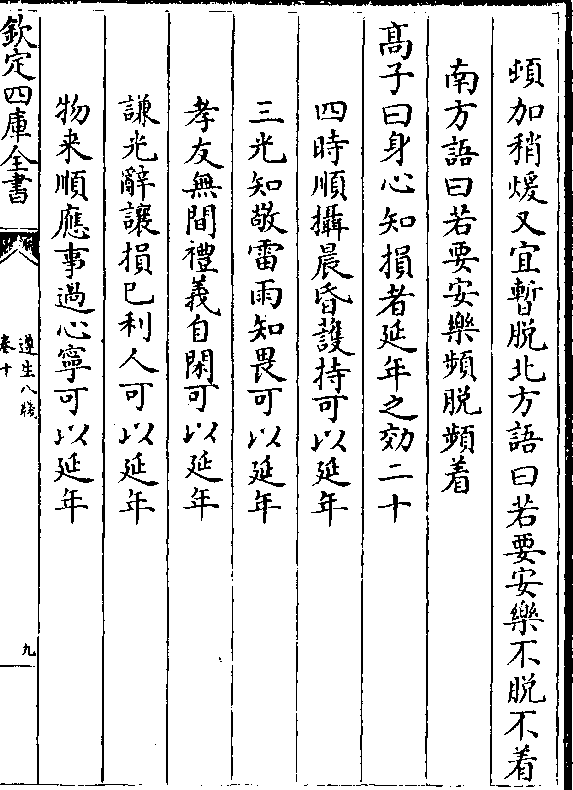 頻加稍煖又宜暫脱北方語曰若要安樂不脱不着
南方語曰若要安樂頻脱頻着
髙子曰身心知損者延年之効二十
四時順攝晨昏䕶持可以延年
三光知敬雷雨知畏可以延年
孝友無間禮義自閑可以延年
謙光辭讓損已利人可以延年
物来順應事過心寧可以延年
欽定四庫全書
遵生八牋
卷十
九